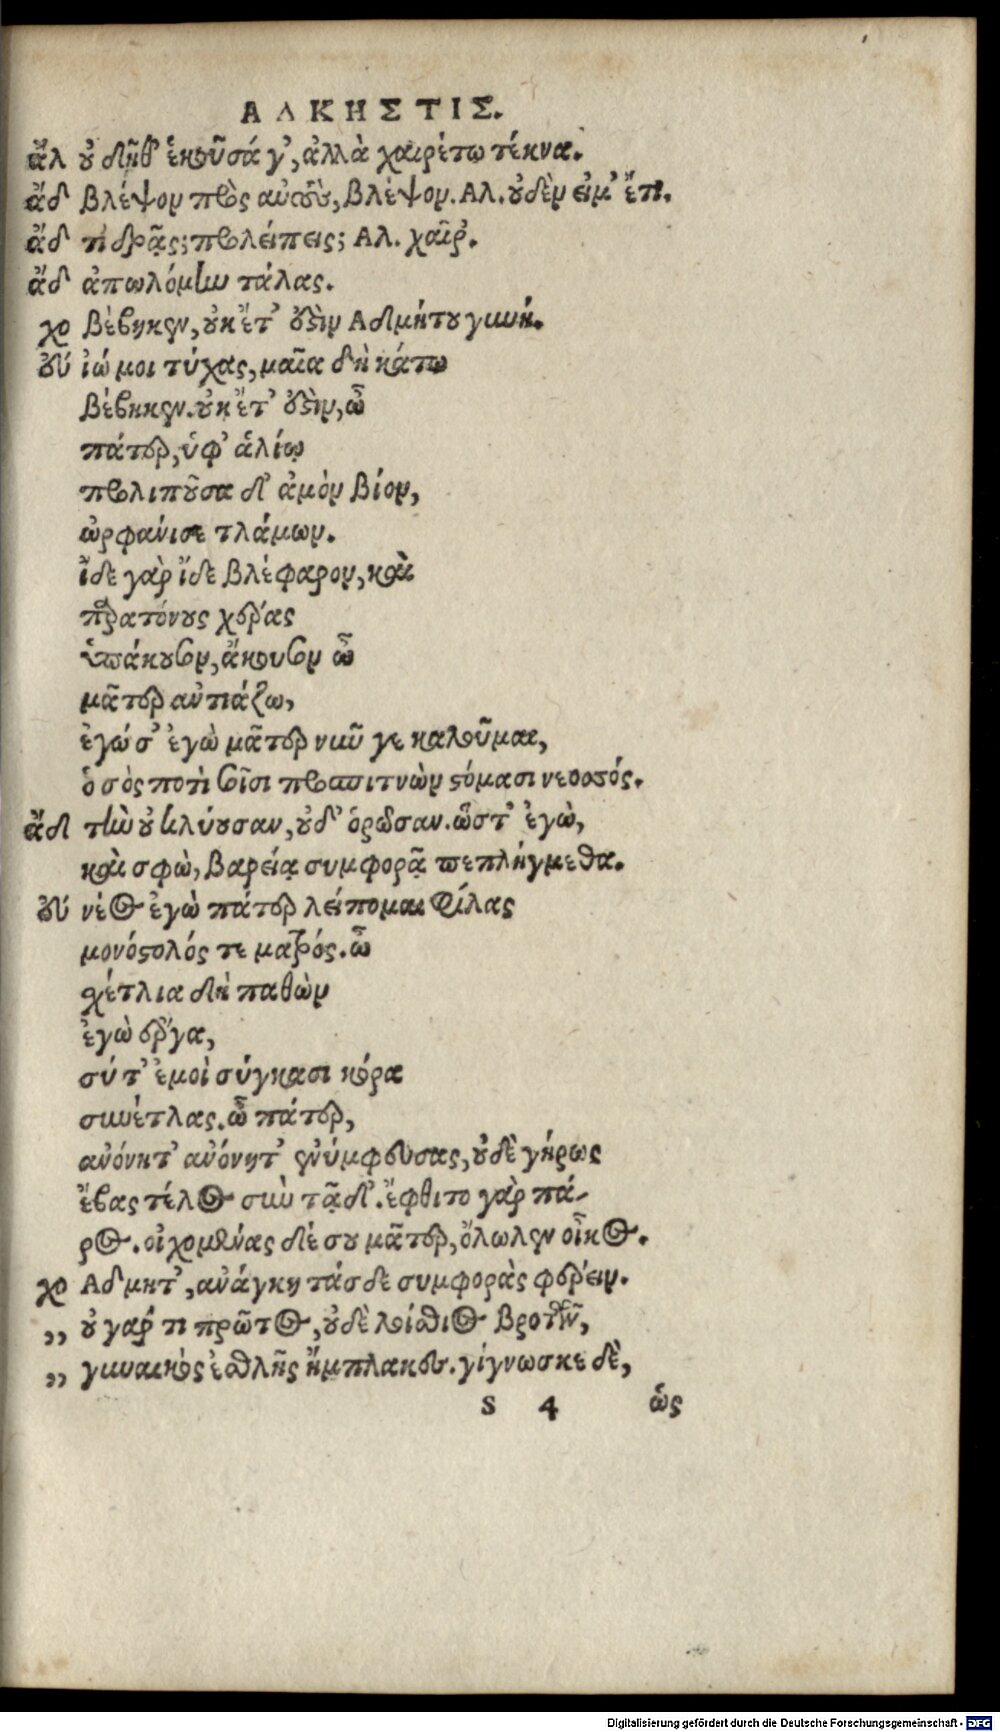 ΑΛΚΗΣΤΙΣ.
ἄλ οὐ δῆθ' ἑκοῦσά γ', ἀλλὰ χαιρέτω τέκνα.
ἄδ βλέψον πρὸς αὐτοὺς, βλέψον. Αλ. οὐδὲν εἰμ' ἔτι.
ἄδ τί δρᾷς; προλείπεις; Αλ. χαῖρ'.
ἄδ ἀπωλόμην τάλας.
χο βέβηκεν, οὐκ ἔτ' ἔστιν Αδμήτου γυνή.
ἐύ ἰώ μοι τύχας, μαῖα δὴ κάτω
βέβηκεν. οὐκ ἔτ' ἔστιν, ὦ
πάτερ, ὑφ' ἁλίῳ
προλιποῦσα δ' ἀμὸν βίον,
ὠρφάνισε τλάμων.
ἴδε γὰρ ἴδε βλέφαρον, καὶ
παρατόνους χέρας
ὑπάκουσον, ἄκουσον ὦ
μᾶτερ ἀντιάζω,
ἐγώ σ' ἐγὼ μᾶτερ νῦν γε καλοῦμαι,
ὁ σὸς ποτὶ σοῖσι προσπιτνὼν στόμασι νεοσσός.
ἄδ τὴν οὐ κλύουσαν, οὐδ' ὁρῶσαν. ὥστ' ἐγὼ,
καὶ σφὼ, βαρείᾳ συμφορᾷ πεπλήγμεθα.
ἐύ νέος ἐγὼ πάτερ λείπομαι φίλας
μονόστολός τε ματρός. ὦ
σχέτλια δὴ παθὼν
ἐγὼ ἔργα,
σύ τ' ἐμοὶ σύγκασι κόρα
συνέτλας. ὦ πάτερ,
ἀνόνητ' ἀνόνητ' ἐνύμφευσας, οὐδὲ γήρως
ἔβας τέλος σὺν τᾷδ'. ἔφθιτο γὰρ πά-
ρος. οἰχομένας δέ σου μᾶτερ, ὄλωλεν οἶκος.
χο Αδμητ', ἀνάγκη τάσδε συμφορὰς φέρειν.
,, οὐ γάρ τι πρῶτος, οὐδὲ λοίσθιος βροτῶν,
,, γυναικὸς ἐσθλῆς ἤμπλακες. γίγνωσκε δὲ,
S 4 ὡς
Digitalisierung gefördert durch die Deutsche Forschungsgemeinschaft - DFG